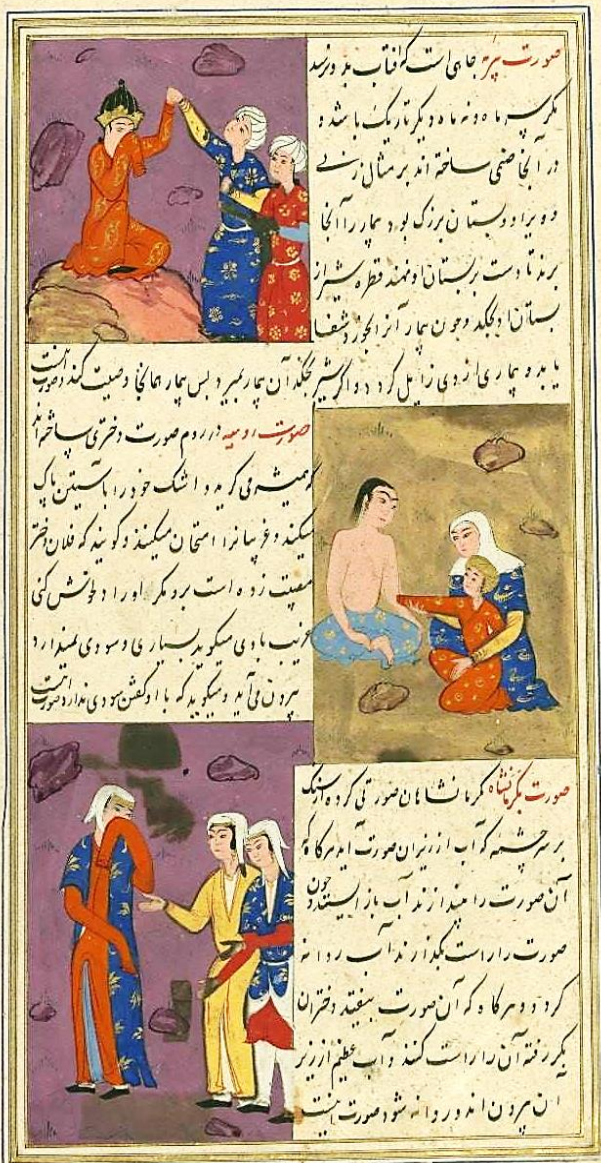 صورت پیره جاهی است که افتاب بدو نرسد
مکر سه ماه و نه ماه دیکر تاریک باشد و
در آنجا صنمی ساخته اند بر مثال زنی
و ویرا دو پستان بزرک بود بیمار را آنجا
برند تا دست بر پستان او نهند قطره شیر از
پستان او بچکد و چون بیمار آنرا بخورد شفا
یابد و بیماری از وی زایل کردد و اکر شیر
نچکد آن بیمار بمیرد پس بیمار همانجا وصیت کند و صورت اینست
صورت در روم صورت دختری ساخته اند
که همیشه می کرید و اشک خود را بآستین پاک
میکند و غریبانرا امتحان میکنند و کویند که فلان دختر
مصیبت زده است برو مکر او را دلخوش کنی
غریب با وی میکوید بسیاری و سودی نمیدارد
بیرون می آید و میکوید که با او کفتن سودی ندارد صورت اینست
صورت بکرمانشاه کرمانشاهان صورتی کرده از سنک
بر سر چشمه که آب از زیر آن صورت آید هر کاه که
آن صورت را بیندازند آب باز ایستد و چون
صورت را راست بکذارند آب روانه
کردد و هر کاه که آن صورت بیفتد دختران
بکر رفته آن را راست کنند و آب عظیم از زیر
آن بیرون اند و روانه شود صورت اینست